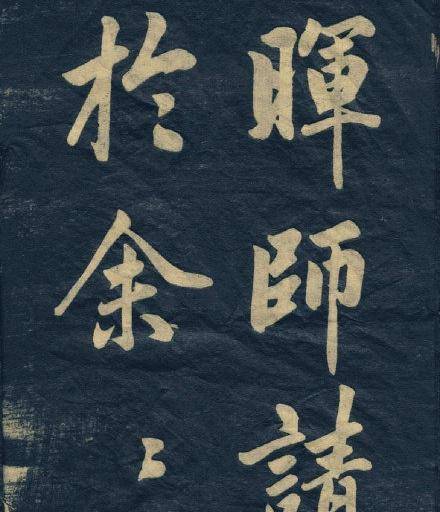 暉師請
於余〻